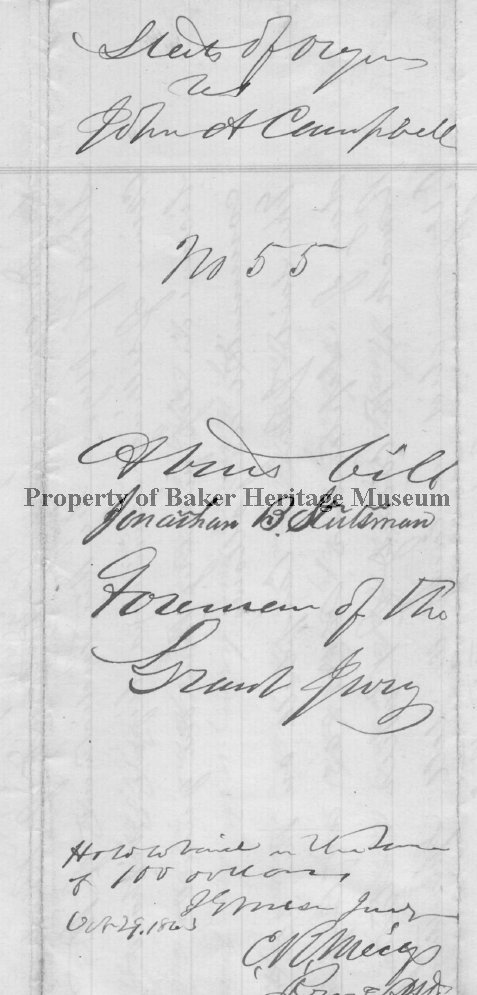 State of Oregon
vs
John A Campbell
No 55
A true bill
Property of Baker Heritage Museum
Jonathan B. Stutsman
Foreman of the
Grand Jury
Hold to bail in the sum
of 100 dollars
Oct 29, 1863